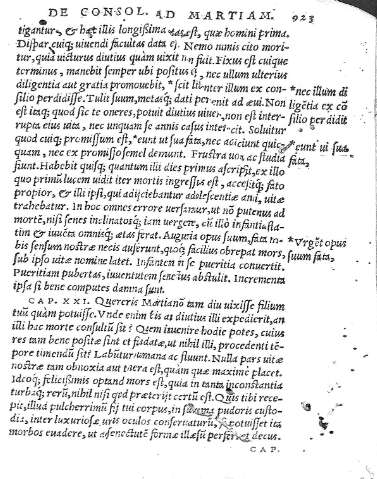 DE CONSOL. AD MARTIAM. 923
tigantur, & hæc illis longissima ætas est, quæ homini prima.
Dispar cuiq; uiuendi facultas data est. Nemo nimis cito mori
tur, quia uicturus diutius quàm uixit non fuit. Fixus est cuique
terminus, manebit semper ubi positus est, nec illum ulterius
diligentia aut gratia promouebit, *scit libenter illum ex con- *nec illum di
silio perdidisse. Tulit suum, metasq; dati peruenit ad æui. Non ligẽtia ex cõ
est itaq; quod sic te oneres, potuit diutius uiuere, non est inter- silio perdidit
rupta eius uita, nec unquam se annis casus intericit. Soluitur
quod cuiq; promissum est, *eunt ut sua fata, nec adiiciunt quic- *eunt ui sua
quam, nec ex promisso semel demunt. Frustra uota ac studia fata,
sunt. Habebit quisq; quantum illi dies primus ascripsit, ex illo
quo primũ lucem uidit iter mortis ingressus est, accessitq; fato
propior, & illi ipsi, qui adijciebantur adolescentiæ anni, uitæ
trahebatur. In hoc omnes errore uersamur, ut nõ putenus ad
mortẽ, nisi senes inclinatosq; iam uergere, cũ illò infantia sta-
tim & iuuẽta omnisq; ætas ferat. Augeria opus suum, fata no- *Vrgẽt opus
bis sensum nostræ necis auferunt, quòq; facilius obrepat mors, suum fata,
sub ipso uitæ nomine latet. Infantem in se pueritia conuertit,
Pueritiam pubertas, iuuentutem senectus abstulit. Incrementa
ipsa si bene computes damna sunt.
CAP. XXI. Quereris Martia nõ tam diu uixisse filium
tuũ quàm potuisset. Vnde enim scis an diutius illi expedierit, an
illi hac morte consultũ sit? Quem inuenire hodie potes, cuius
res tam bene positæ sint et fũdatæ, ut nihil illi, procedenti tẽ-
pore timendũ sit? Labũtur humana ac fluunt. Nulla pars uitæ
nostræ tam obnoxia aut tenera est, quàm quæ maximè placet.
Ideoq; felicissimis optanda mors est, quia in tanta inconstantia
turbaq; rerũ, nihil nisi qđ præterijt certũ est. Quis tibi rece-
pit, illud pulcherrimũ filij tui corpus, in summa pudoris custo-
dia, inter luxuriosæ urbis oculos conseruatum, potuisset ita
morbos euadere, ut ad senectutẽ formæ illæsum perferret decus.
CAP.